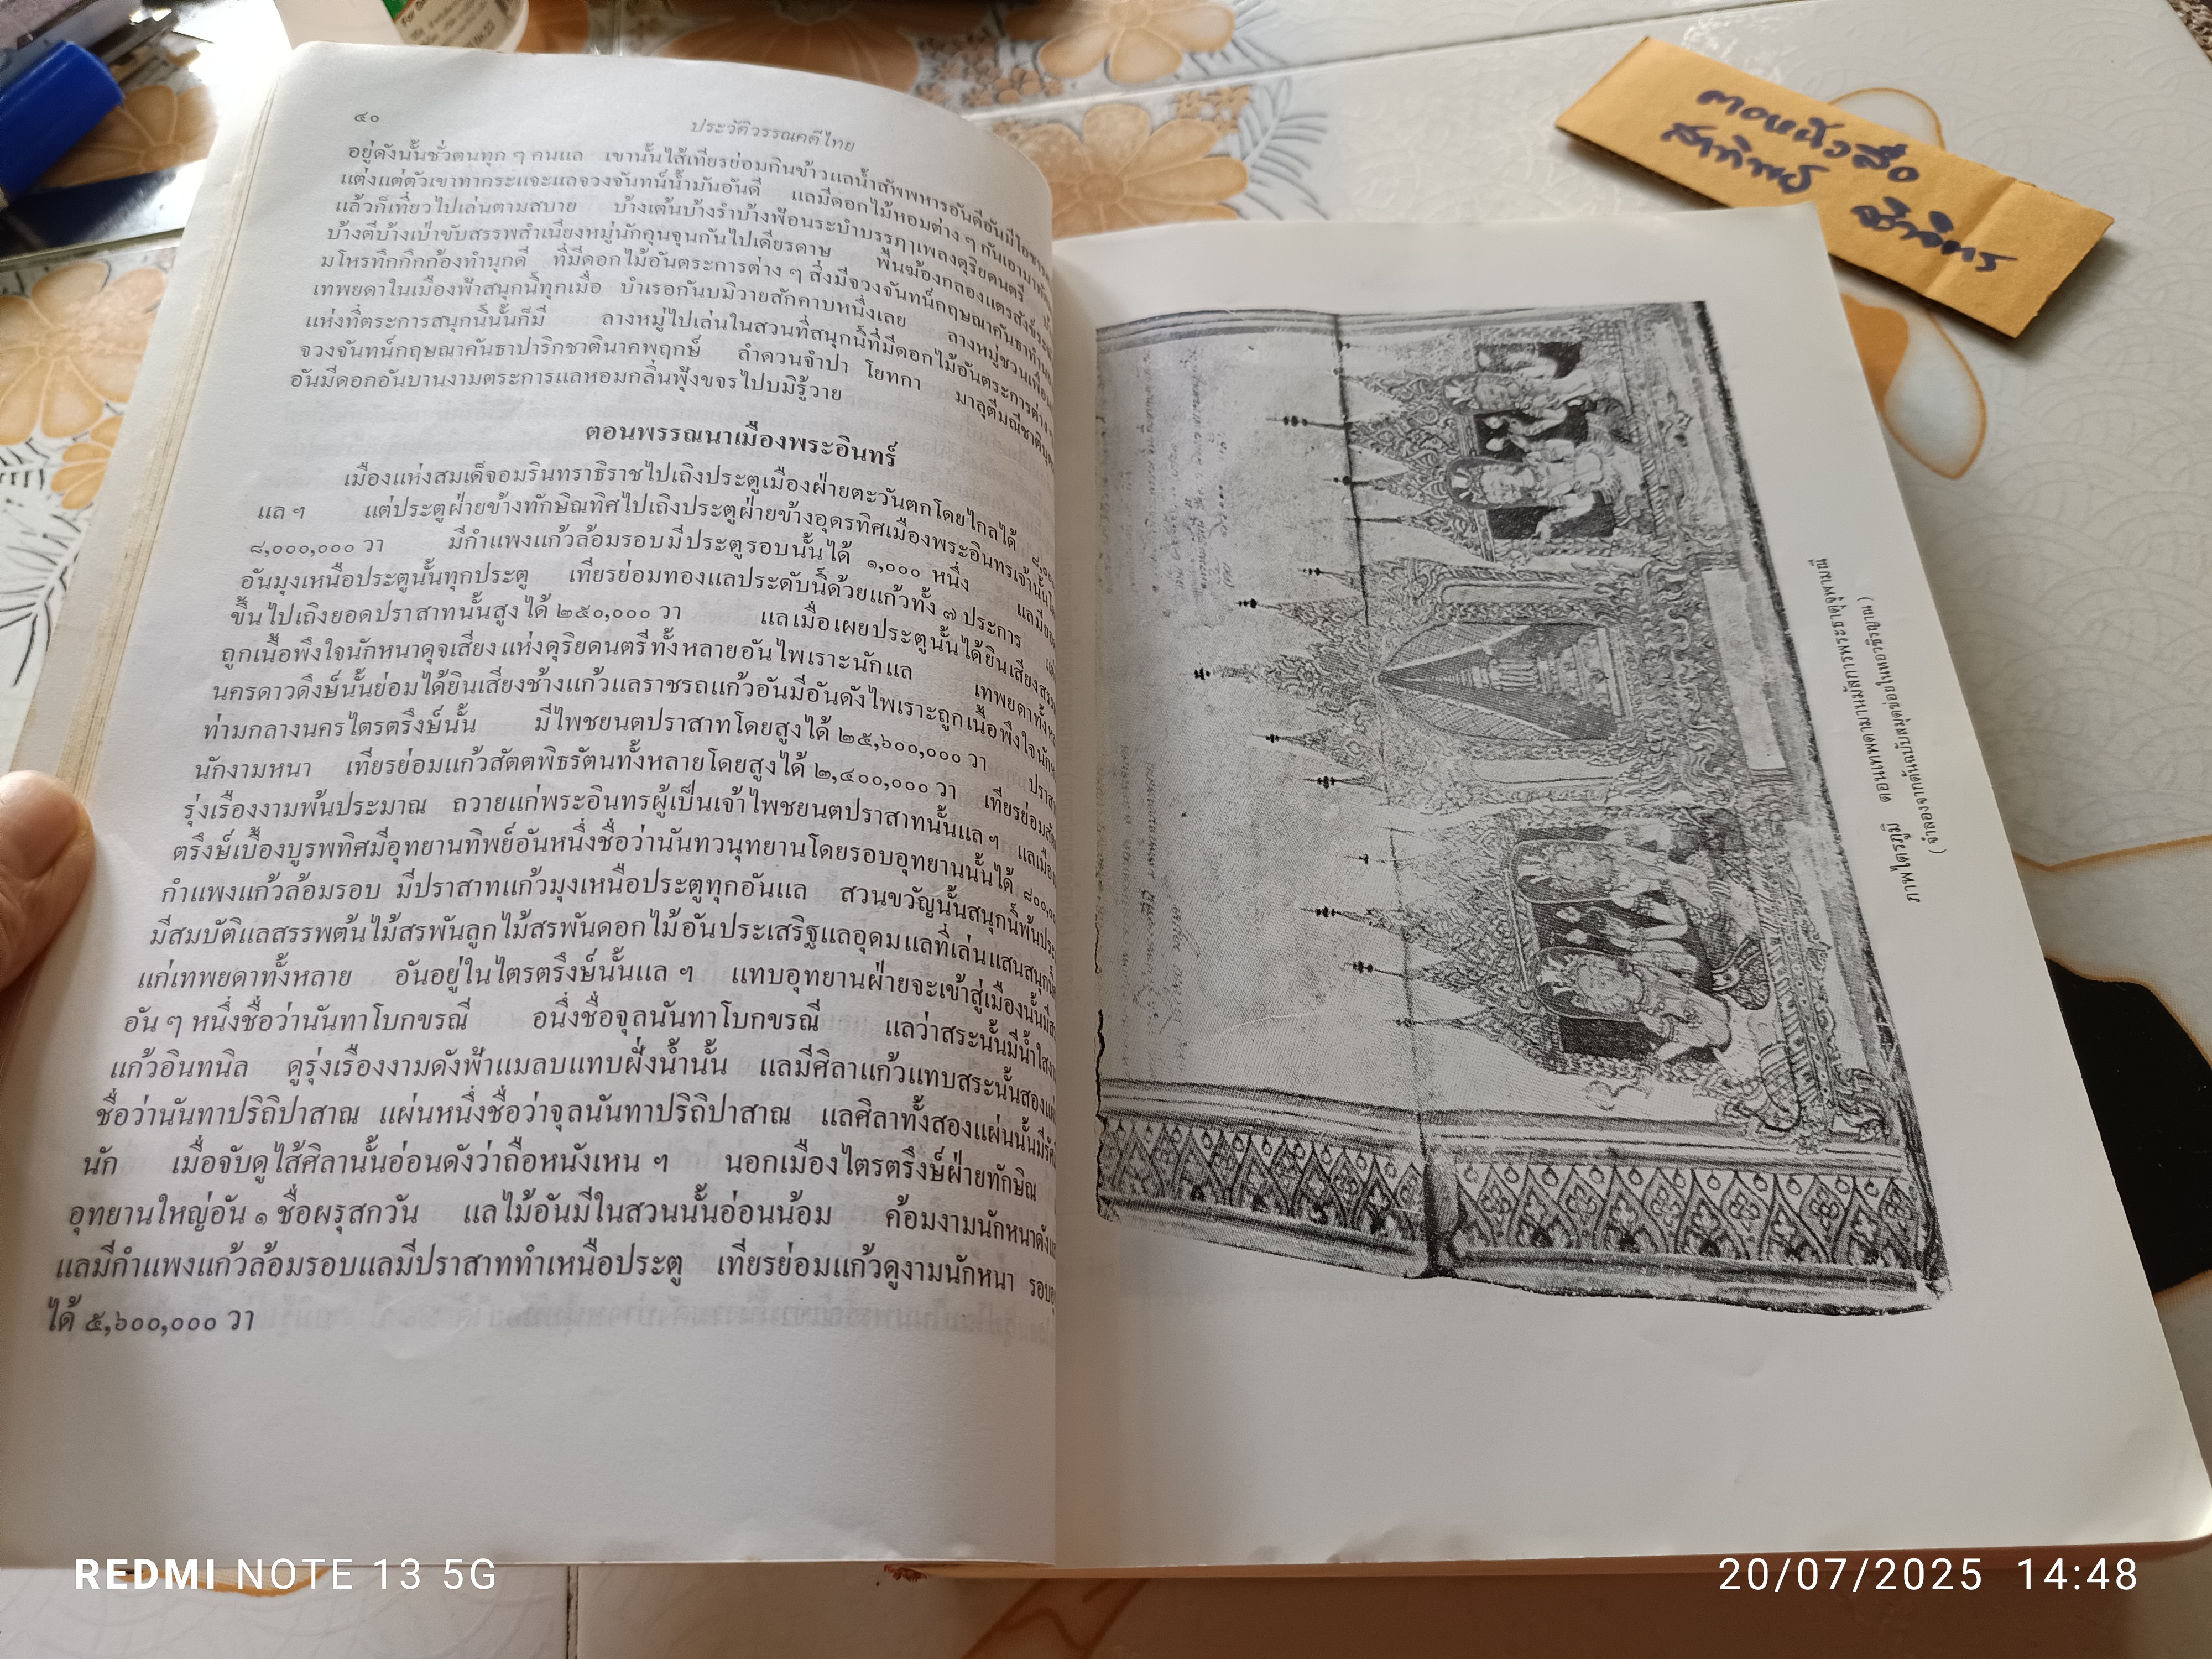 ๔๐
ประวัติวรรณคดีไทย
อยู่ดังนั้นชั่วตนทุก ๆ คนแล เขานั้นไส้เทียรย่อมกินข้าวแลน้ำสัพพหารอันดีอันมีโอชารส
แต่งแต่ตัวเขาทากระแจะแลจวงจันทน์น้ำมันอันดี แลมีดอกไม้หอมต่าง ๆ กันเอามาทัด
แล้วก็เที่ยวไปเล่นตามสบาย บ้างเต้นบ้างรำบ้างฟ้อนระบำบรรฦาเพลงดุริยดนตรี
บ้างตีบ้างเป่าขับสรรพสำเนียงหมู่นักคุนจุนกันไปเดียรดาษ พื้นฆ้องกลองแตรสังข์
มโหรทึกกึกก้องทำนุกดี ที่มีดอกไม้อันตระการต่าง ๆ สิ่งมีจวงจันทน์กฤษณาคันธา
เทพยดาในเมืองฟ้าสนุกนิ์ทุกเมื่อ บำเรอกันบมิวายสักคาบหนึ่งเลย ลางหมู่ชวนเพื่อน
แห่งที่ตระการสนุกนิ์นั้นก็มี ลางหมู่ไปเล่นในสวนที่สนุกนิ์ที่มีดอกไม้อันตระการต่าง ๆ
จวงจันทน์กฤษณาคันธาปาริกชาตินาคพฤกษ์ ลำดวนจำปา โยทกา มาลุตีมณีชาติบุตร
อันมีดอกอันบานงามตระการแลหอมกลิ่นฟุ้งขจรไปบมิรู้วาย
ตอนพรรณนาเมืองพระอินทร์
เมืองแห่งสมเด็จอมรินทราธิราชไปเถิงประตูเมืองฝ่ายตะวันตกโดยไกลได้
แล ๆ แต่ประตูฝ่ายข้างทักษิณทิศไปเถิงประตูฝ่ายข้างอุดรทิศเมืองพระอินทรเจ้านั้น
๘,๐๐๐,๐๐๐ วา มีกำแพงแก้วล้อมรอบมีประตูรอบนั้นได้ ๑,๐๐๐ หนึ่ง แลมียอด
อันมุงเหนือประตูนั้นทุกประตู เทียรย่อมทองแลประดับนิ์ด้วยแก้วทั้ง ๗ ประการ
ขึ้นไปเถิงยอดปราสาทนั้นสูงได้ ๒๕๐,๐๐๐ วา แลเมื่อเผยประตูนั้นได้ยินเสียง
ถูกเนื้อพึงใจนักหนาดุจเสียงแห่งดุริยดนตรีทั้งหลายอันไพเราะนักแล เทพยดาทั้ง
นครดาวดึงษ์นั้นย่อมได้ยินเสียงช้างแก้วแลราชรถแก้วอันมีอันดังไพเราะถูกเนื้อพึงใจนัก
ท่ามกลางนครไตรตรึงษ์นั้น มีไพชยนตปราสาทโดยสูงได้ ๒๕,๖๐๐,๐๐๐ วา
นักงามหนา เทียรย่อมแก้วสัตตพิธรัตนทั้งหลายโดยสูงได้ ๒,๔๐๐,๐๐๐ วา เทียรย่อม
รุ่งเรืองงามพ้นประมาณ ถวายแก่พระอินทรผู้เป็นเจ้าไพชยนตปราสาทนั้นแล ๆ แลเมือง
ตรึงษ์เบื้องบูรพทิศมีอุทยานทิพย์อันหนึ่งชื่อว่านันทวนุทยานโดยรอบอุทยานนั้นได้
กำแพงแก้วล้อมรอบ มีปราสาทแก้วมุงเหนือประตูทุกอันแล สวนขวัญนั้นสนุกนิ์พ้น
มีสมบัติแลสรรพต้นไม้สรพันลูกไม้สรพันดอกไม้อันประเสริฐแลอุดม แลที่เล่นแสนสนุก
แก่เทพยดาทั้งหลาย อันอยู่ในไตรตรึงษ์นั้นแล ๆ แทบอุทยานฝ่ายจะเข้าสู่เมืองนั้นมี
อัน ๆ หนึ่งชื่อว่านันทาโบกขรณี อนึ่งชื่อจุลนันทาโบกขรณี แลว่าสระนั้นมีน้ำใส
แก้วอินทนิล ดูรุ่งเรืองงามดังฟ้าแมลบแทบฝั่งน้ำนั้น แลมีศิลาแก้วแทบสระนั้นสอง
ชื่อว่านันทาปริถิปาสาณ แผ่นหนึ่งชื่อว่าจุลนันทาปริถิปาสาณ แลศิลาทั้งสองแผ่นนั้นมีรัศมี
นัก เมื่อจับดูไส้ศิลานั้นอ่อนดังว่าถือหนังเหน ๆ นอกเมืองไตรตรึงษ์ฝ่ายทักษิณ
อุทยานใหญ่อัน ๑ ชื่อผรุสกวัน แลไม้อันมีในสวนนั้นอ่อนน้อม ค้อมงามนักหนาดัง
แลมีกำแพงแก้วล้อมรอบแลมีปราสาททำเหนือประตู เทียรย่อมแก้วดูงามนักหนา รอบ
ได้ ๕,๖๐๐,๐๐๐ วา
ภาพไตรภูมิ ตอนเทพดามานมัสการพระธาตุจุฬามณี
( จำลองจากต้นฉบับสมุดข่อยในหอวชิรญาณ )
ตอหนังสือ
สาทิพย์
REDMI NOTE 13 5G
20/07/2025 14:48